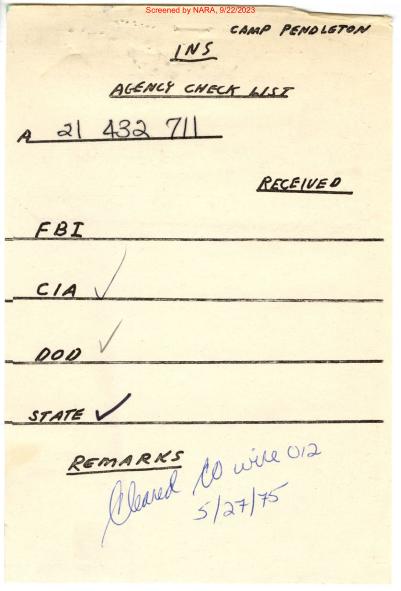 Screened by NARA, 9/22/2023
CAMP PENDLETON
INS
AGENCY CHECK LIST
A 21 432 711
RECEIVED
FBI
CIA ✓
DOD ✓
STATE ✓
REMARKS
Cleared CO wire 012
5/27/75